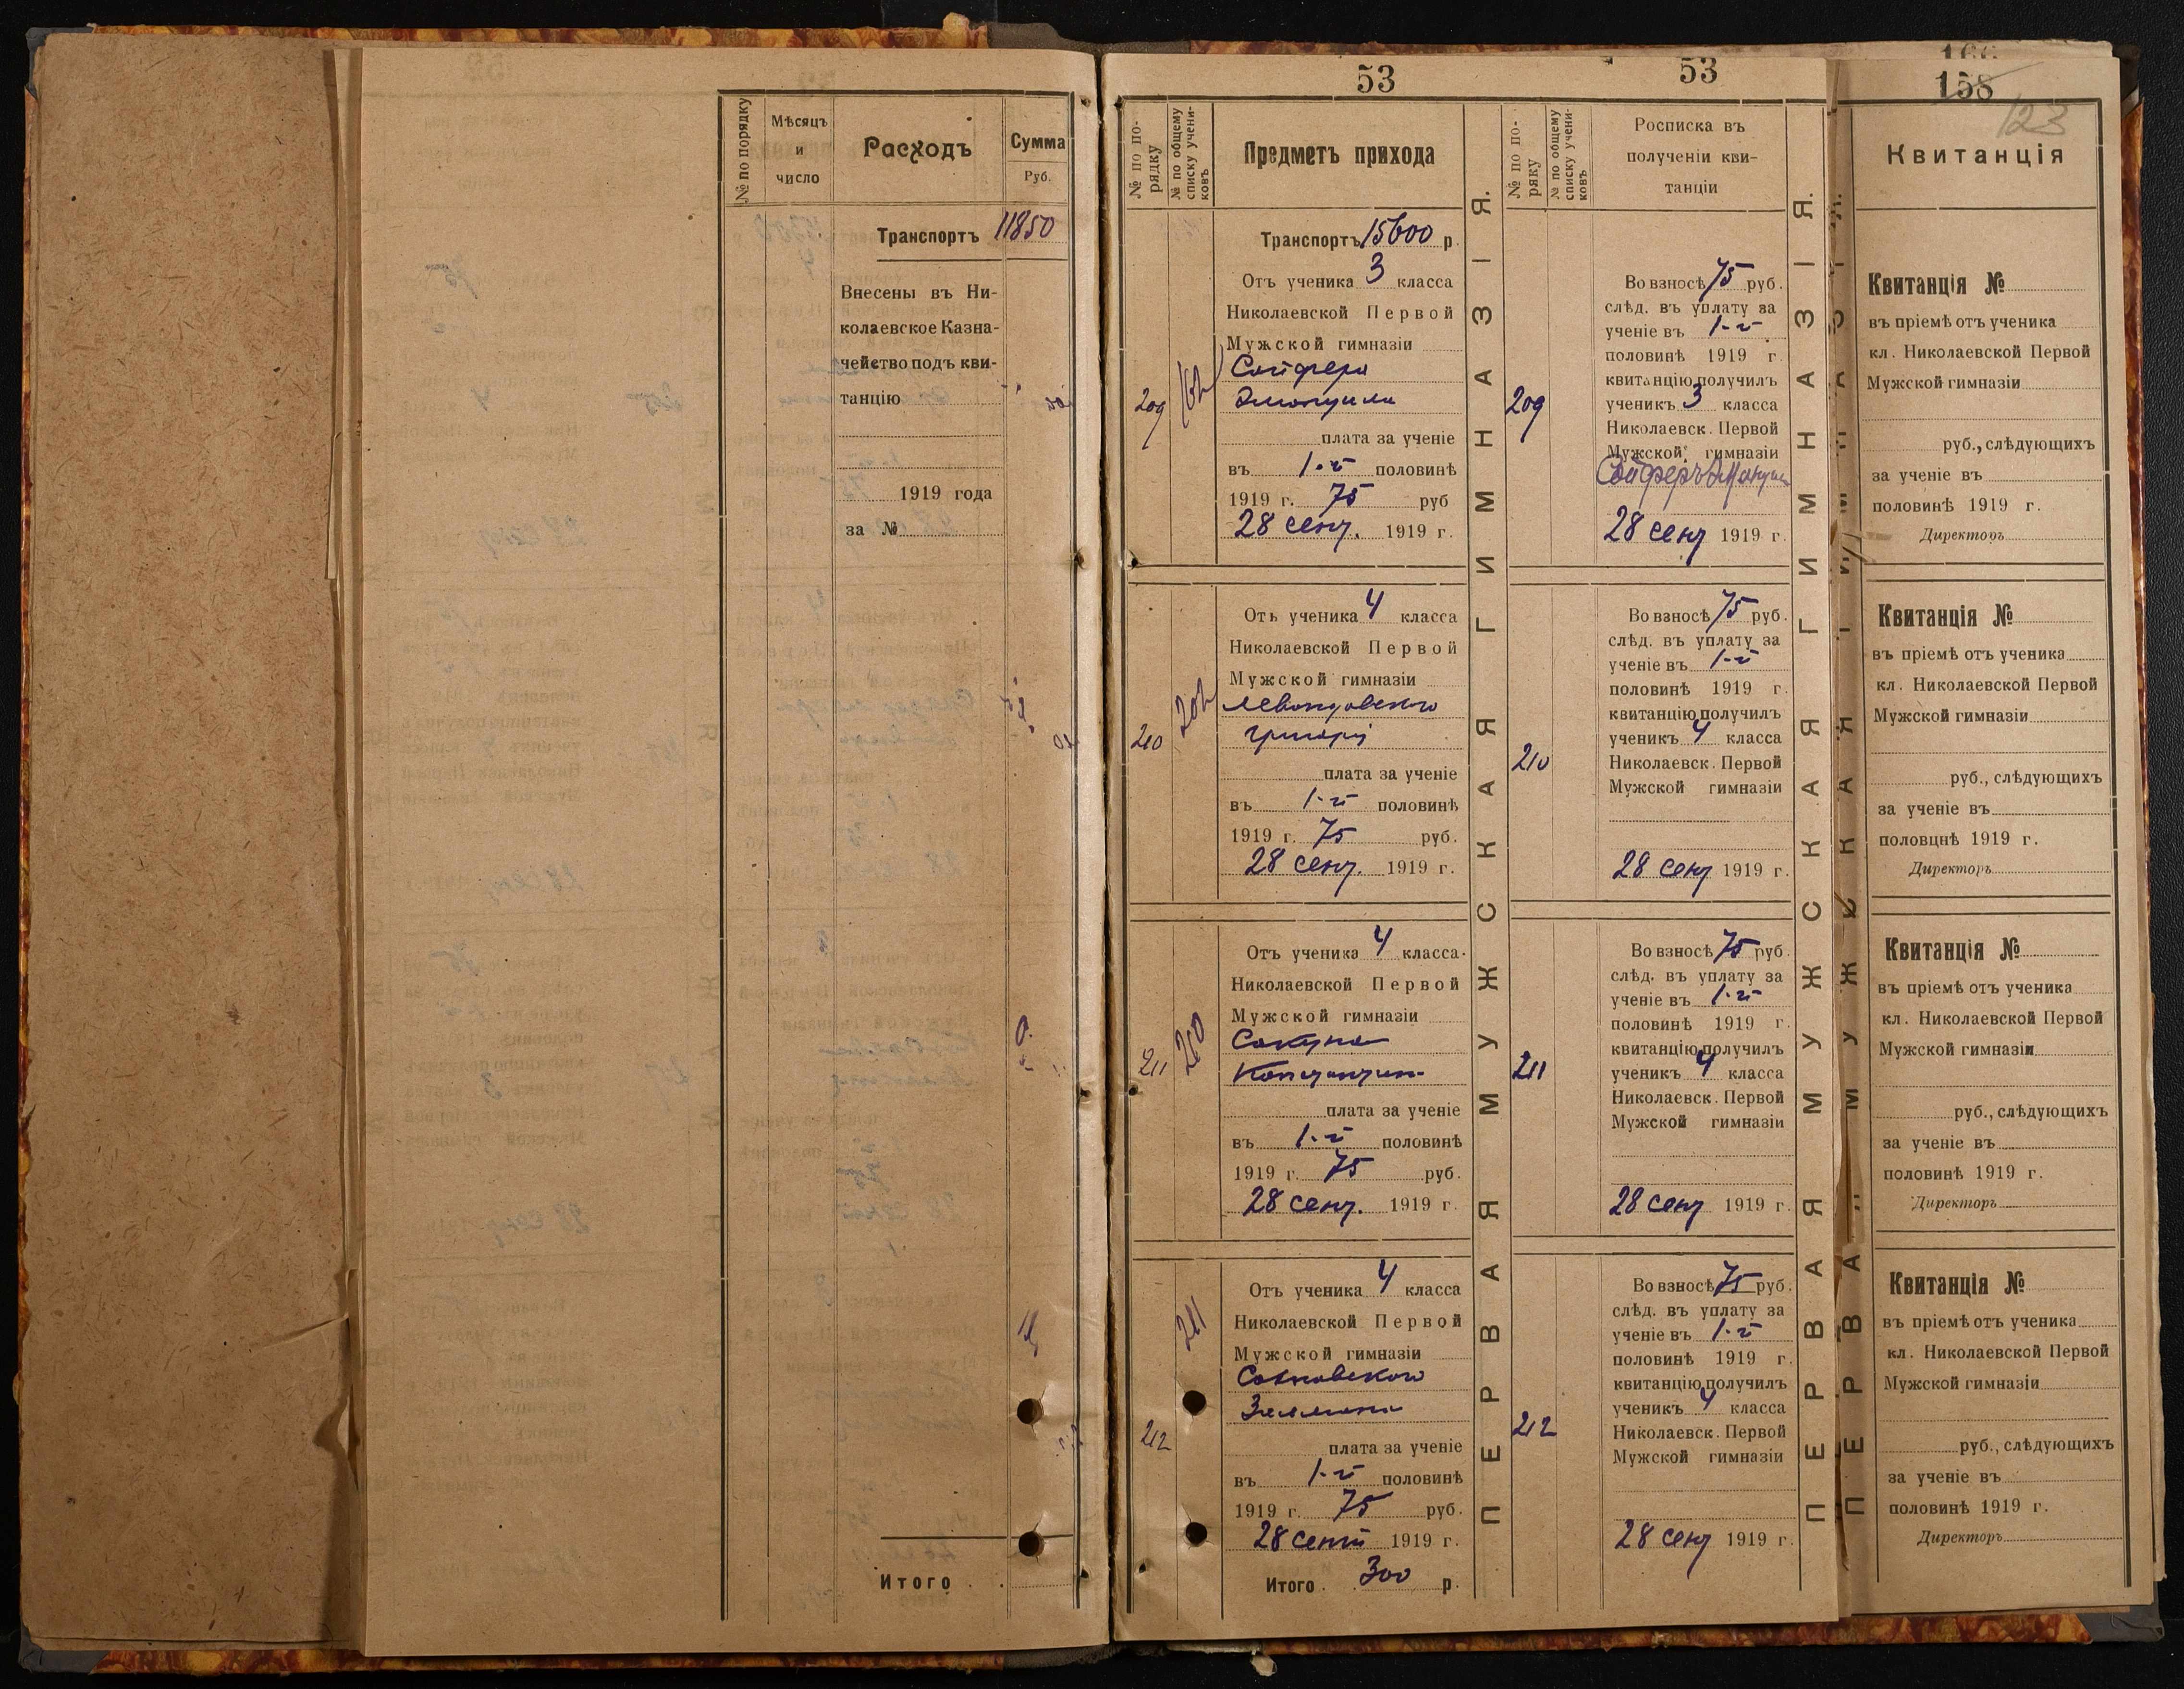 № по порядку
Мѣсяцъ
и
число
Расходъ
Сумма
Руб.
Транспортъ 11850
Внесены въ Ни-
колаевское Казна-
чейство подъ кви-
танцію
1919 года
за №
Итого
53
№ по по-
рядку
№ по общему
списку учени-
ковъ
Предметъ прихода
Транспортъ 15600 р.
Отъ ученика 3 класса
Николаевской Первой
Мужской гимназіи
Сойфера
209
плата за ученіе
въ 1-й половинѣ
1919 г. 75 руб
28 сент. 1919 г.
Отъ ученика 4 класса
Николаевской Первой
Мужской гимназіи
202
Григорій
210
плата за ученіе
въ 1-й половинѣ
1919 г. 75 руб.
28 сент. 1919 г.
Отъ ученика 4 класса.
Николаевской Первой
Мужской гимназіи
210
Сокупа
211
Константин
плата за ученіе
въ 1-й половинѣ
1919 г. 75 руб.
28 сент. 1919 г.
Отъ ученика 4 класса
Николаевской Первой
Мужской гимназіи
211
Совковского
Залмана
212
плата за ученіе
въ 1-й половинѣ
1919 г. 75 руб.
28 сент 1919 г.
Итого 300 р.
ПЕРВАЯ МУЖСКАЯ ГИМНАЗІЯ.
53
№ по по-
ряку
№ по общему
списку учени-
ковъ
Росписка въ
полученіи кви-
танціи
Во взносѣ 75 руб.
слѣд. въ уплату за
ученіе въ 1-й
половинѣ 1919 г.
квитанцію получилъ
209 ученикъ 3 класса
Николаевск. Первой
Мужской гимназіи
Сойферъ
28 сент 1919 г.
Во взносѣ 75 руб.
слѣд. въ уплату за
ученіе въ 1-й
половинѣ 1919 г.
квитанцію получилъ
ученикъ 4 класса
210 Николаевск. Первой
Мужской гимназіи
28 сент 1919 г.
Во взносѣ 75 руб.
слѣд. въ уплату за
ученіе въ 1-й
половинѣ 1919 г.
квитанцію получилъ
211 ученикъ 4 класса
Николаевск. Первой
Мужской гимназіи
28 сент 1919 г.
Во взносѣ 75 руб.
слѣд. въ уплату за
ученіе въ 1-й
половинѣ 1919 г.
квитанцію получилъ
ученикъ 4 класса
212 Николаевск. Первой
Мужской гимназіи
28 сент 1919 г.
ПЕРВАЯ МУЖСКАЯ ГИМНАЗІЯ.
158
123
Квитанція
Квитанція №
въ пріемѣ отъ ученика
кл. Николаевской Первой
Мужской гимназіи
руб., слѣдующихъ
за ученіе въ
половинѣ 1919 г.
Директоръ
Квитанція №
въ пріемѣ отъ ученика
кл. Николаевской Первой
Мужской гимназіи
руб., слѣдующихъ
за ученіе въ
половцнѣ 1919 г.
Директоръ
Квитанція №
въ пріемѣ отъ ученика
кл. Николаевской Первой
Мужской гимназіи
руб., слѣдующихъ
за ученіе въ
половинѣ 1919 г.
Директоръ
Квитанція №
въ пріемѣ отъ ученика
кл. Николаевской Первой
Мужской гимназіи
руб., слѣдующихъ
за ученіе въ
половинѣ 1919 г.
Директоръ